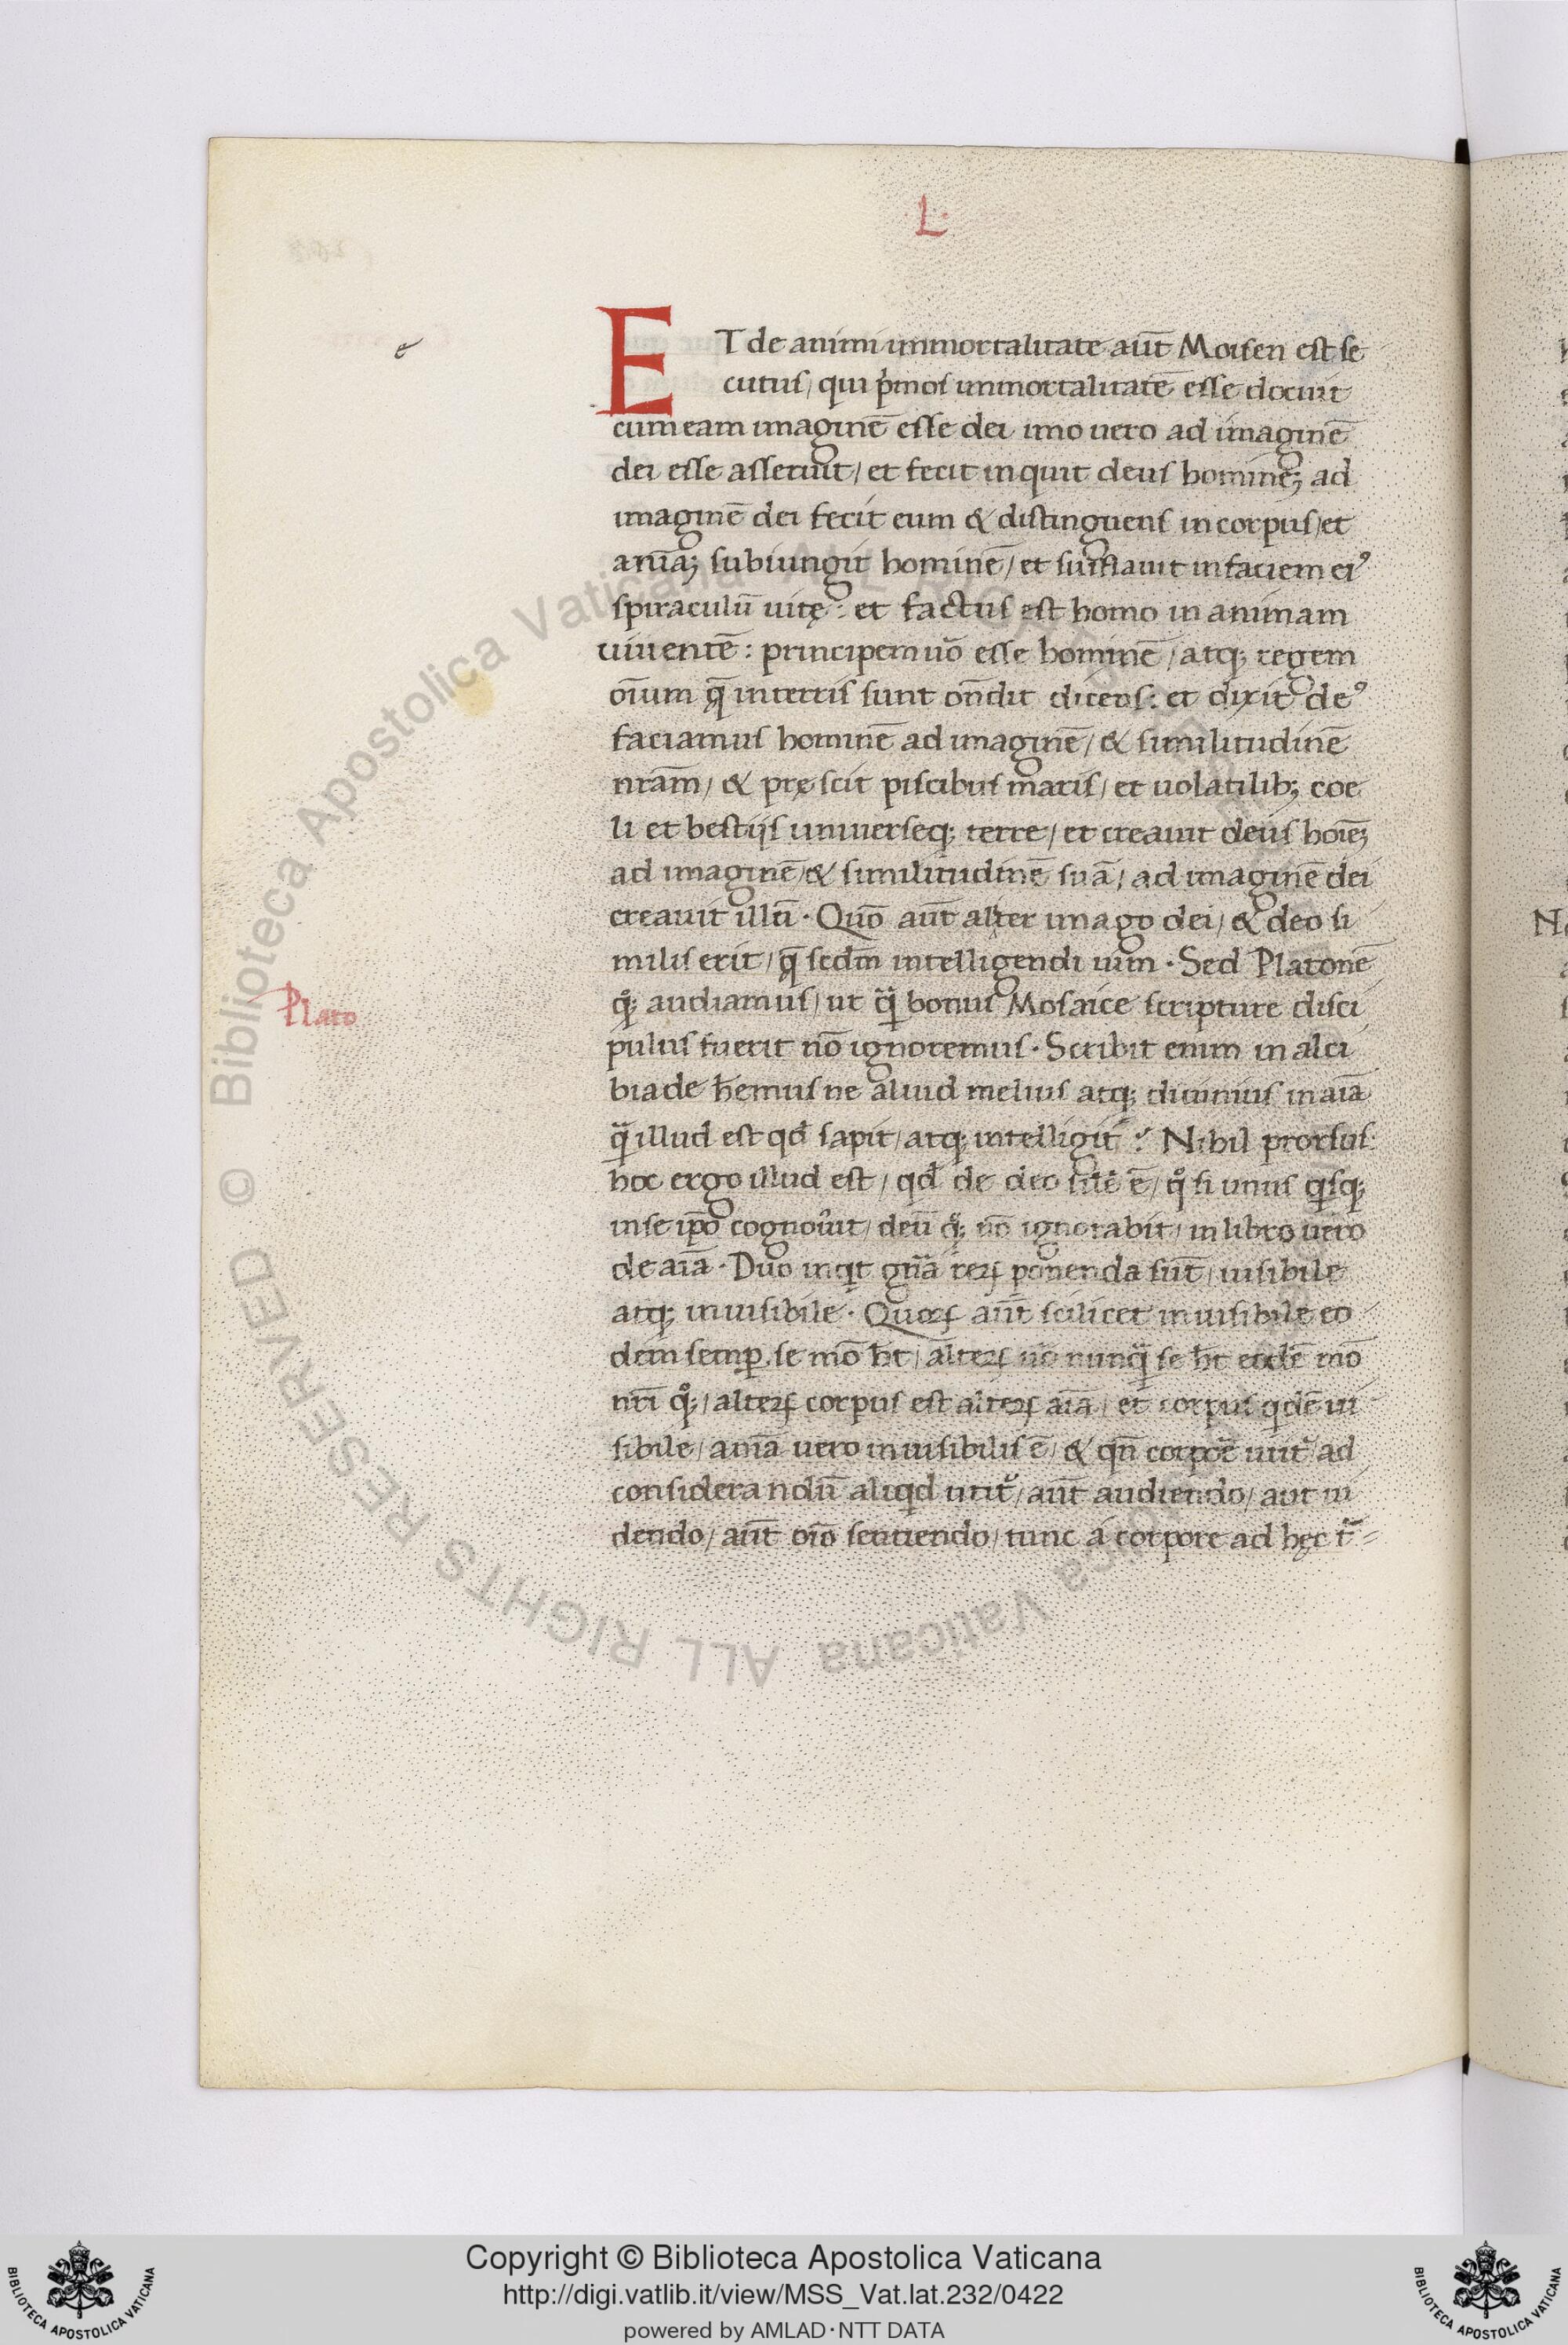 L·
ET de animi immortalitate aut̄ Moisen est se
cutus/ qui p̍mos immortalitatē esse docuit
cum eam imaginē esse dei imo uero ad imaginē
dei esse asseruit/ et fecit inquit deus hominēꝫ ad
imaginē dei fecit eum & distinguens in corpus/et
animāꝫ subiungit hominē/ et sufflauit in faciem eiꝰ
spiraculū uitę: et factus est homo in animam
uiuentē: principem uō esse hominē/ atqꝫ regem
oīum q̄ in terris sunt ōndit dicens: et dixit deꝰ
faciamus hominē ad imaginē/ & similitudinē
nrām/ & pręscit piscibus maris/ et uolatilibꝫ coe
li et bestijs uniuerseqꝫ terre/ et creauit deus hoīeꝫ
ad imaginē/& similitudinē suā/ ad imaginē dei
creauit illū· Quō aut̄ alter imago dei/ & deo si
milis erit/ q̄ secd̄m intelligendi uim· Sed Platonē
Plato
qͦꝫ audiamus/ ut q̄ bonus Mosaice scripture disci
pulus fuerit nō ignoremus· Scribit enim in alci
biade hēmus ne aliud melius atqꝫ diuinius in aīa
q̄ illud est qd̄ sapit/ atqꝫ intelligit? Nihil prorsus
hoc ergo illud est/ qd̄ de deo sil̄e ē/ qͦ si unus qisqꝫ
in se ip̄o cognouīt/ deū qͦꝫ nō ignorabit/ in libro uero
de aīa· Duo inqit gn̄a reꝝ ponenda sūt/ uisibile
atqꝫ inuisibile· Quoꝝ aūt scilicet inuisibile eo
dem semp̱ se mō ht̄/ alteꝝ uō nunq̄ se ht̄ eodē mō
nrī qͦꝫ/ alteꝝ corpus est alteꝝ aīa/ et corpus qidē ui
sibile/ anīa uero inuisibilis ē/ & qn̄ corporē utit᷑ ad
considerandū aliqid utit᷑/ aūt audiendo/ aut ui
dendo/ aūt oīo sentiendo/ tunc a corpore ad hęc t᷑=
Copyright © Biblioteca Apostolica Vaticana
http://digi.vatlib.it/view/MSS_Vat.lat.232/0422
powered by AMLAD·NTT DATA